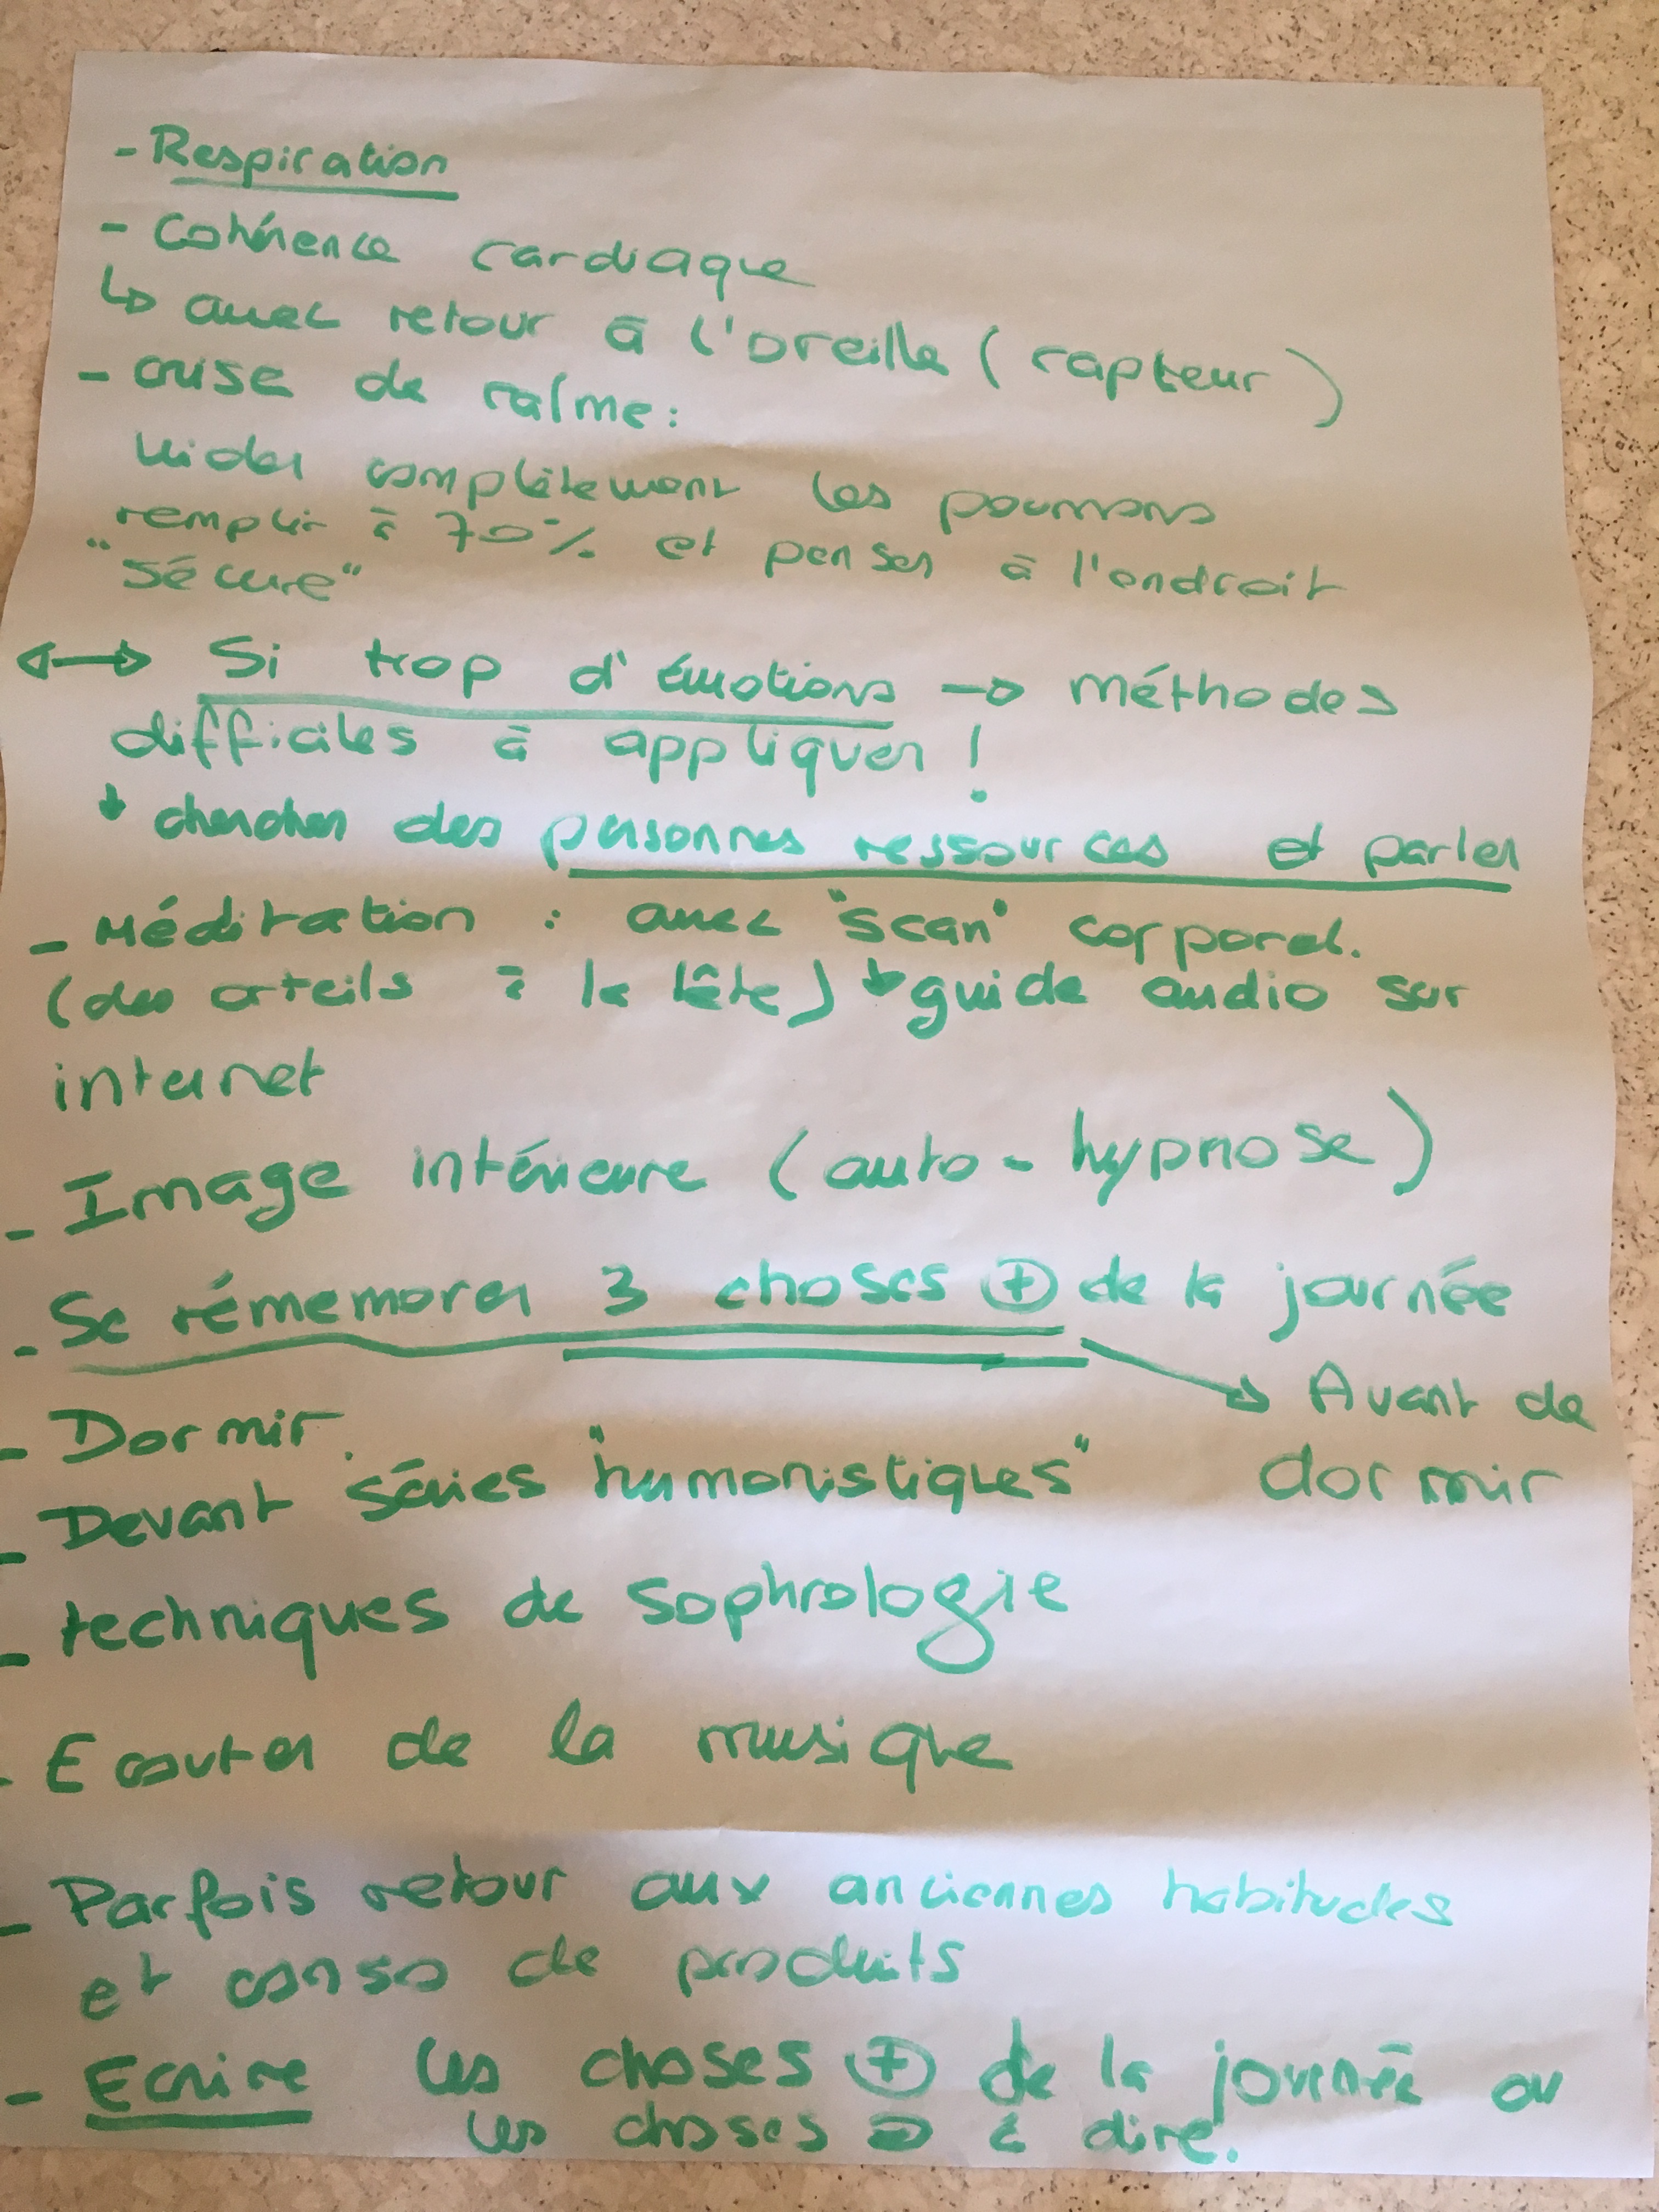 - Respiration
- Cohérence cardiaque
↳ avec retour à l'oreille (capteur)
- crise de calme :
vider complètement les poumons
remplir à 70% et penser à l'endroit
"sécure"
↔ Si trop d'émotions → méthodes
difficiles à appliquer !
↓ chercher des personnes ressources et parler
- Méditation : avec "scan" corporel.
(des orteils à la tête) ↳ guide audio sur
internet
- Image intérieure (auto-hypnose)
- Se rémemorer 3 choses ⊕ de la journée
→ Avant de
dormir
- Dormir.
- Devant séries "humoristiques"
- techniques de sophrologie
- Ecouter de la musique
- Parfois retour aux anciennes habitudes
et conso de produits
- Ecrire les choses ⊕ de la journée ou
les choses ⊖ à dire.